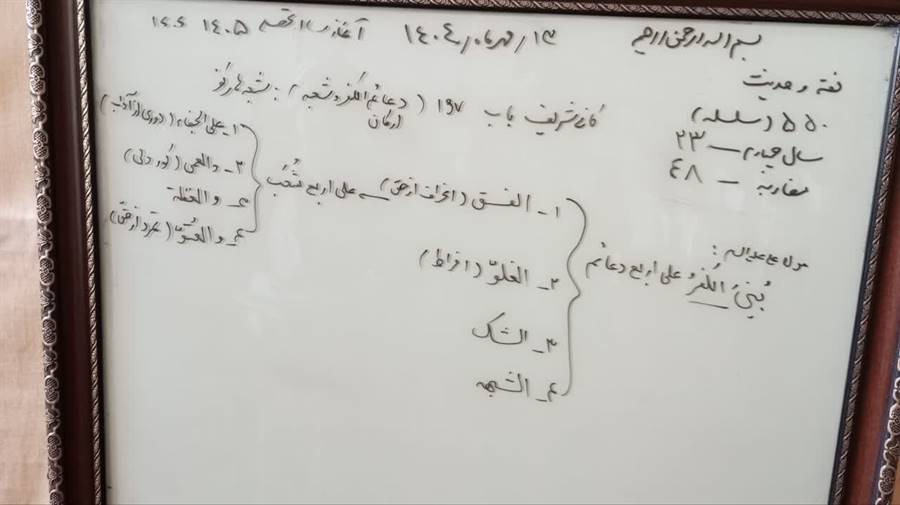 بسم الله الرحمن الرحیم
۱۳ / مهرماه / ۱۴۰۴
آغاز سال تحصیلی ۱۴۰۵ ۱۴۰۴
فقه و حدیث
۵۵۰ (سلسله)
سال چهارم – ۲۳
مقارنه – ۴۸
کافی شریف باب ۱۹۷ (دعائم الکفر و شعبه) : شعبه های کفر
ارکان
مولا علیه السلام :
بُنِیَ الکُفرُ علی اربع دعائم
۱ـ الفسق (انحراف از حق) علی اربع شُعَب
۱ـ علی الجفاء (دوری از آداب)
۲ـ والعمی (کوردلی)
۳ـ والغفلة
۴ـ والعُتُوّ (تمرد از حق)
۲ـ الغلوّ (افراط)
۳ـ الشک
۴ـ الشبهه